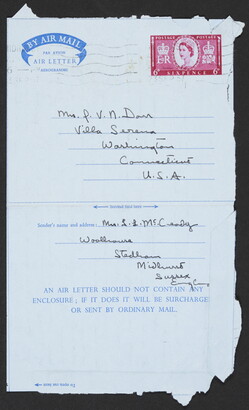 BY AIR MAIL
PAR AVION
AIR LETTER
AEROGRAMME
POSTAGE POSTAGE
E R
6D SIXPENCE 6D
Mrs. J. V. N. Dorr
Villa Serena
Washington
Connecticut
U.S.A.
Second fold here
Sender's name and address: Mrs. L. L. McCready
Woolhouse
Stedham
Midhurst
Sussex
England
AN AIR LETTER SHOULD NOT CONTAIN ANY
ENCLOSURE; IF IT DOES IT WILL BE SURCHARGED
OR SENT BY ORDINARY MAIL.
To open cut here